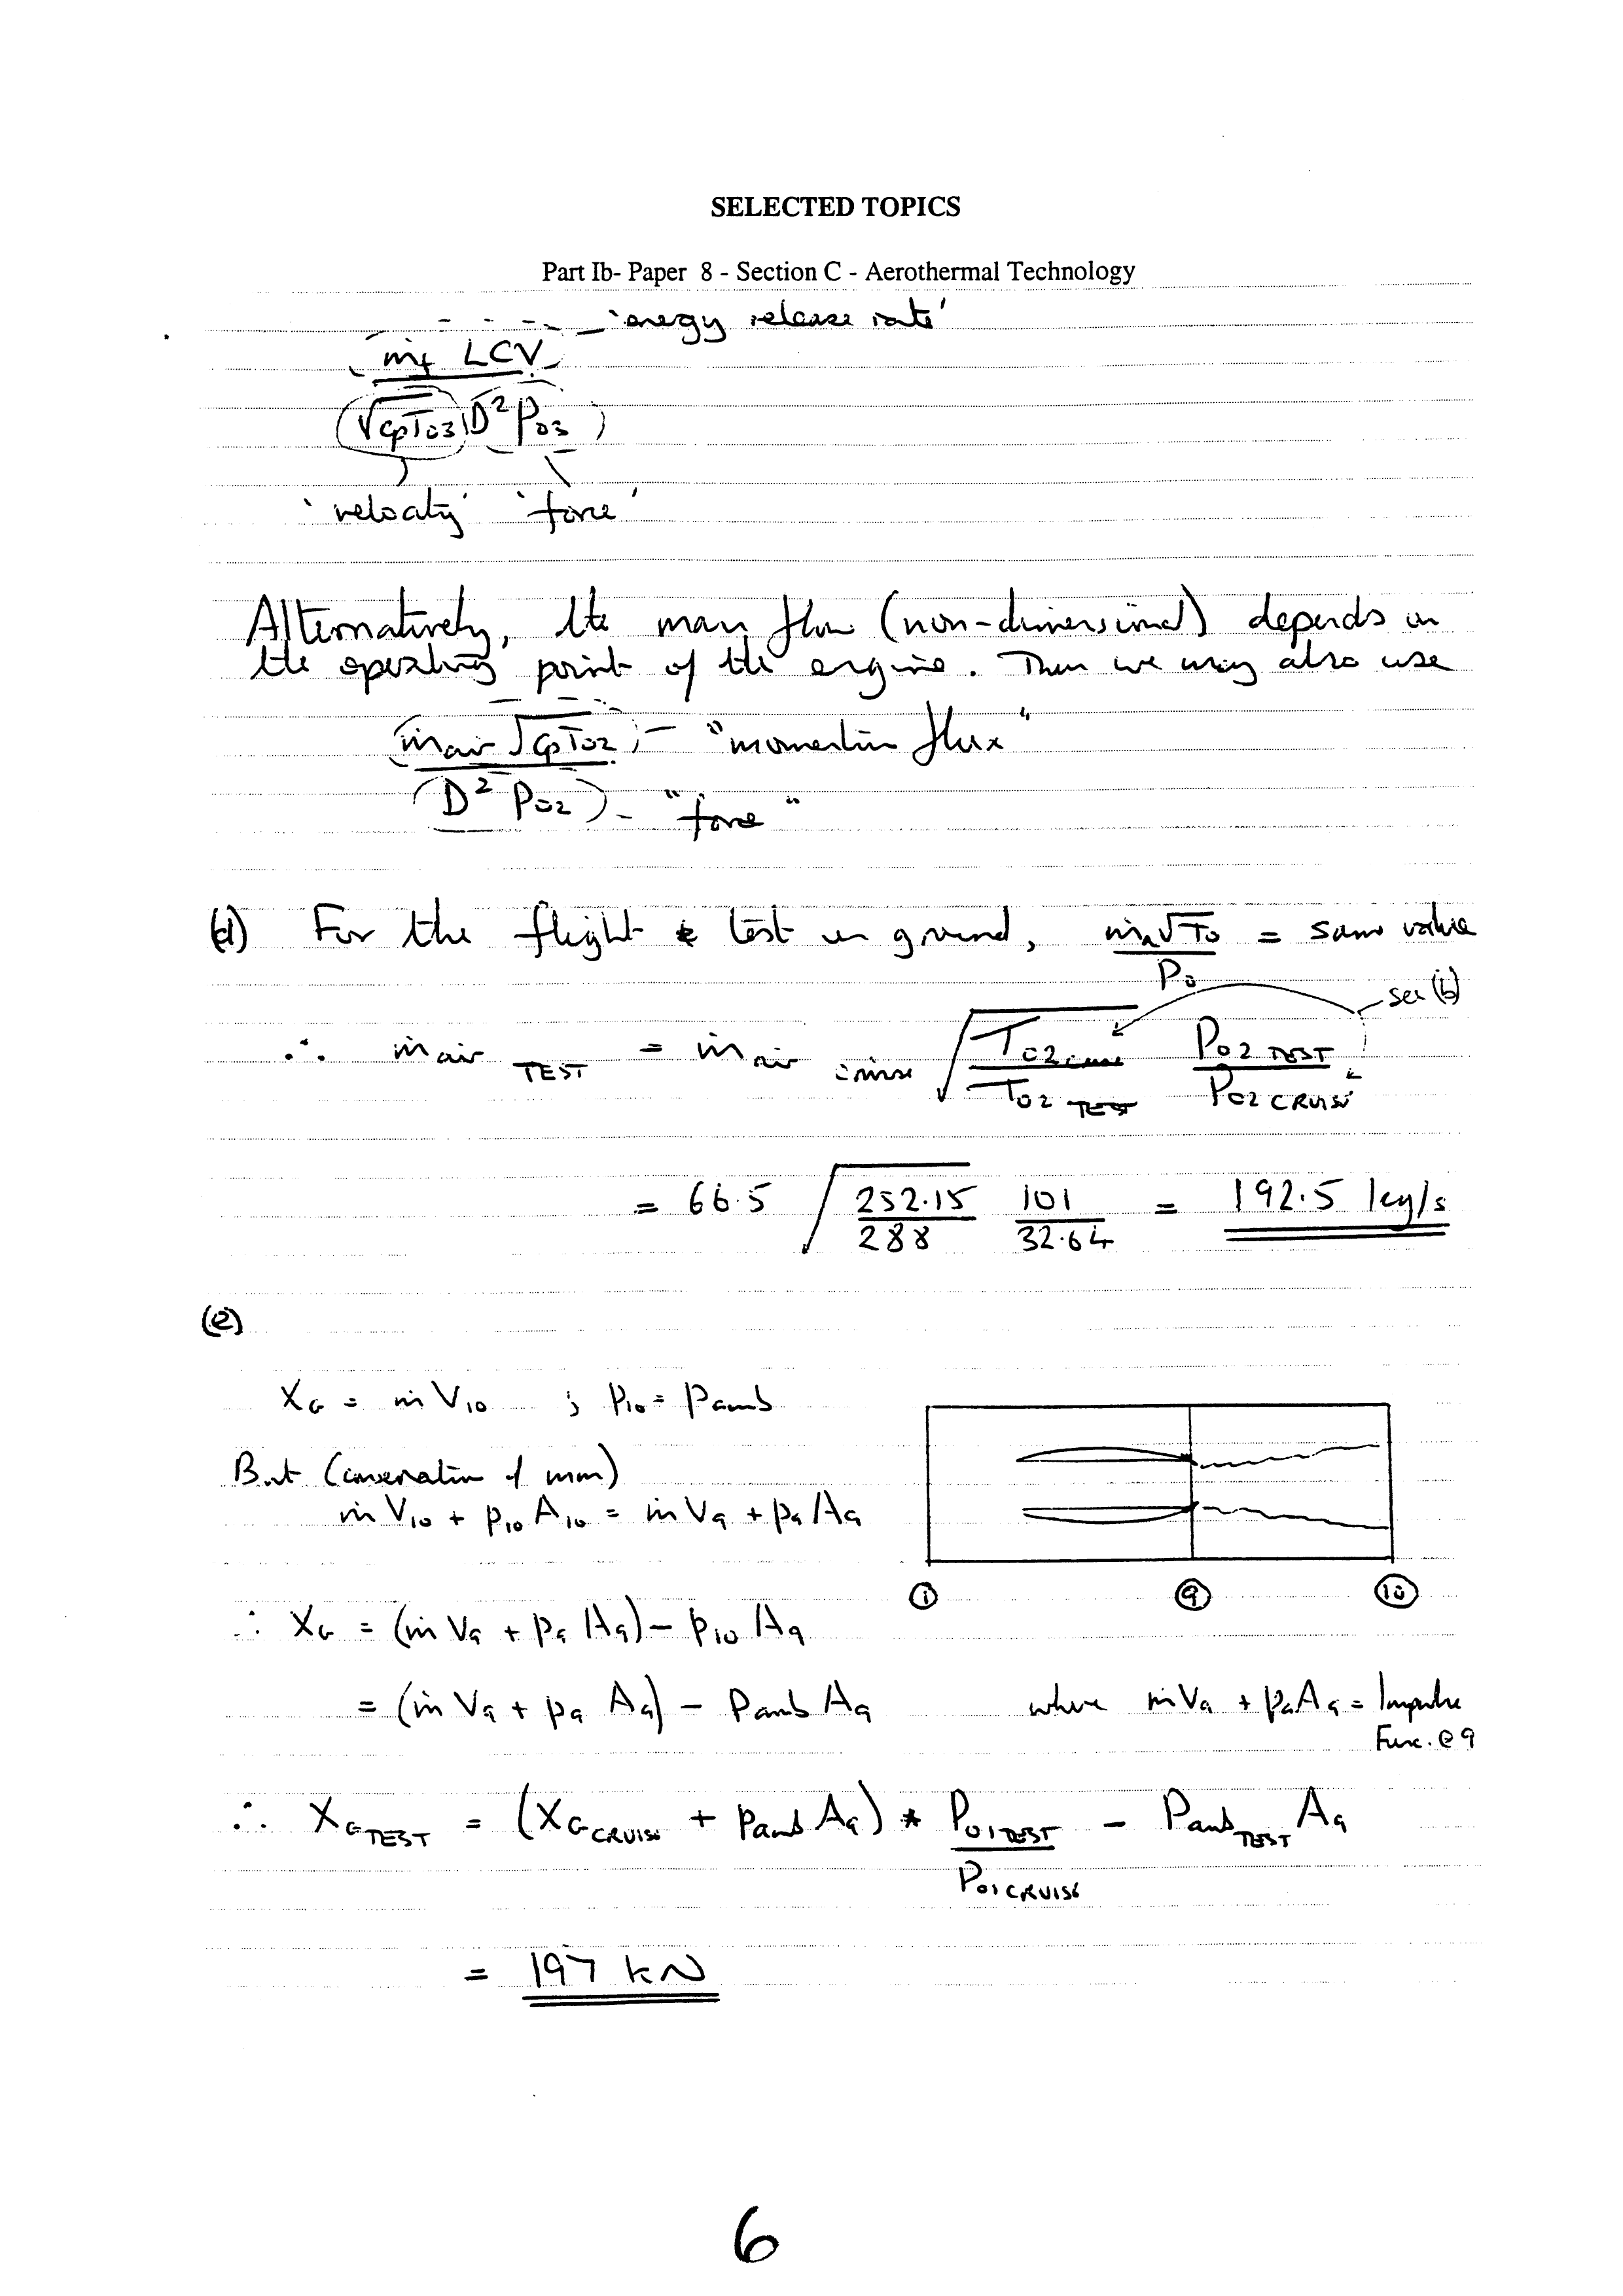 SELECTED TOPICS
Part Ib- Paper 8 - Section C - Aerothermal Technology
'energy release rate'
ṁf LCV
√CpT03 D² P03
'velocity' 'force'
Alternatively, the mass flow (non-dimensional) depends on
the operating point of the engine. Then we may also use
ṁair √CpT02 - "momentum flux"
D² P02 - "force"
(d) For the flight & test on ground, ṁa√T0 / P0 = same value
see (b)
∴ ṁair TEST = ṁair cruise √(T02 cruise / T02 TEST) P02 TEST / P02 CRUISE
= 66.5 √(252.15 / 288) 101 / 32.64 = 192.5 kg/s
(e)
XG = ṁ V10 ; P10 = Pamb
But (conservation of mom)
ṁ V10 + P10 A10 = ṁ V9 + P9 A9
① ⑨ ⑩
∴ XG = (ṁ V9 + P9 A9) - P10 A9
= (ṁ V9 + P9 A9) - Pamb A9 where ṁV9 + P9A9 = Impulse
Func. @ 9
∴ XG TEST = (XG CRUISE + Pamb A9) * P01 TEST / P01 CRUISE - Pamb TEST A9
= 197 kN
6